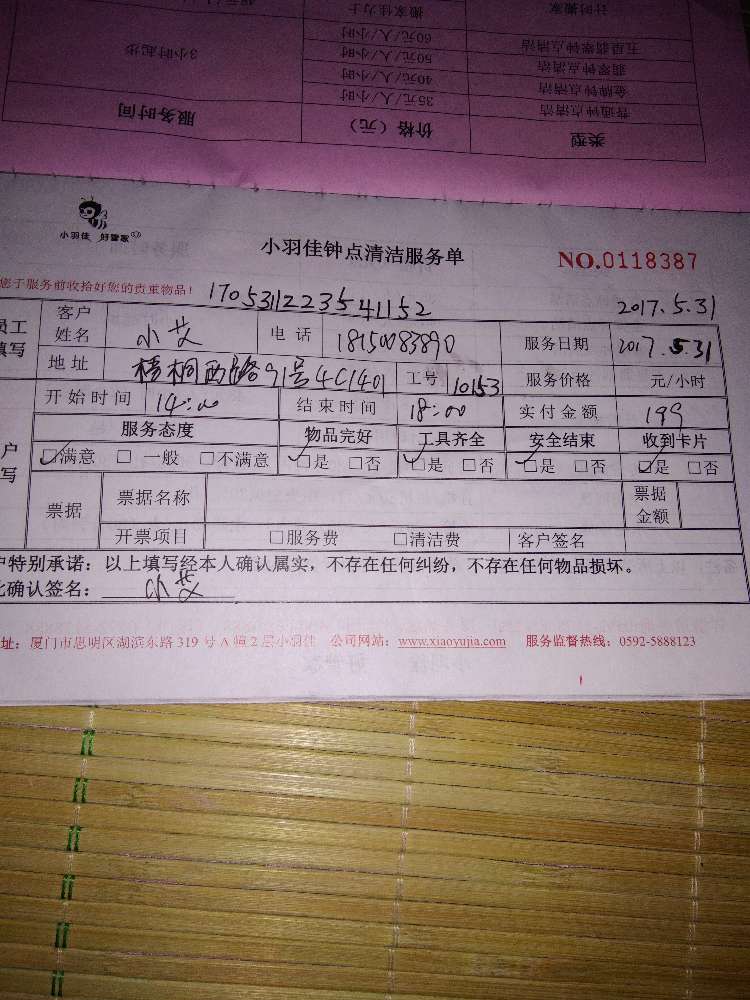 计时搬家 搬家佳力士
五星翡翠钟点清洁 60元/人/小时
翡翠钟点清洁 50元/人/小时 3小时起步
金牌钟点清洁 40元/人/小时
普通钟点清洁 35元/人/小时
类型 价格（元） 服务时间
小羽佳 好管家
小羽佳钟点清洁服务单
NO.0118387
您于服务前收拾好您的贵重物品！
170531122354 1152
2017.5.31
员工填写 客户姓名 小艾 电话 18150083890 服务日期 2017.5.31
地址 梧桐西路91号4C1401 工号 10153 服务价格 元/小时
开始时间 14:00 结束时间 18:00 实付金额 199
户写 服务态度 物品完好 工具齐全 安全结束 收到卡片
☑满意 □一般 □不满意 ☑是 □否 ☑是 □否 ☑是 □否 ☑是 □否
票据 票据名称 票据金额
开票项目 □服务费 □清洁费 客户签名
户特别承诺：以上填写经本人确认属实，不存在任何纠纷，不存在任何物品损坏。
此确认签名： 小艾
址：厦门市思明区湖滨东路319号A幢2层小羽佳 公司网站：www.xiaoyujia.com 服务监督热线：0592-5888123